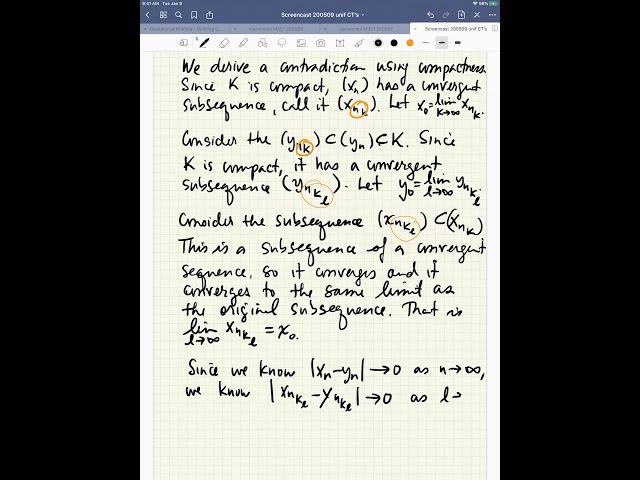 8:41 AM Tue Jan 9
98%
Screencast 200509 unif CT's
Screencast 200509 unif CT's
We derive a contradiction using compactness
Since K is compact, (xₙ) has a convergent
subsequence, call it (x_{n_k}). Let x₀=lim_{k→∞} x_{n_k}.
Consider the (y_{n_k}) ⊂ (yₙ) ⊂ K. Since
K is compact, it has a convergent
subsequence (y_{n_{k_l}}). Let y₀=lim_{l→∞} y_{n_{k_l}}.
Consider the subsequence (x_{n_{k_l}}) ⊂ (x_{n_k})
This is a subsequence of a convergent
sequence, so it converges and it
converges to the same limit as
the original subsequence. That is
lim_{l→∞} x_{n_{k_l}} = x₀.
Since we know |xₙ-yₙ| → 0 as n→∞,
we know |x_{n_{k_l}} - y_{n_{k_l}}| → 0 as l→